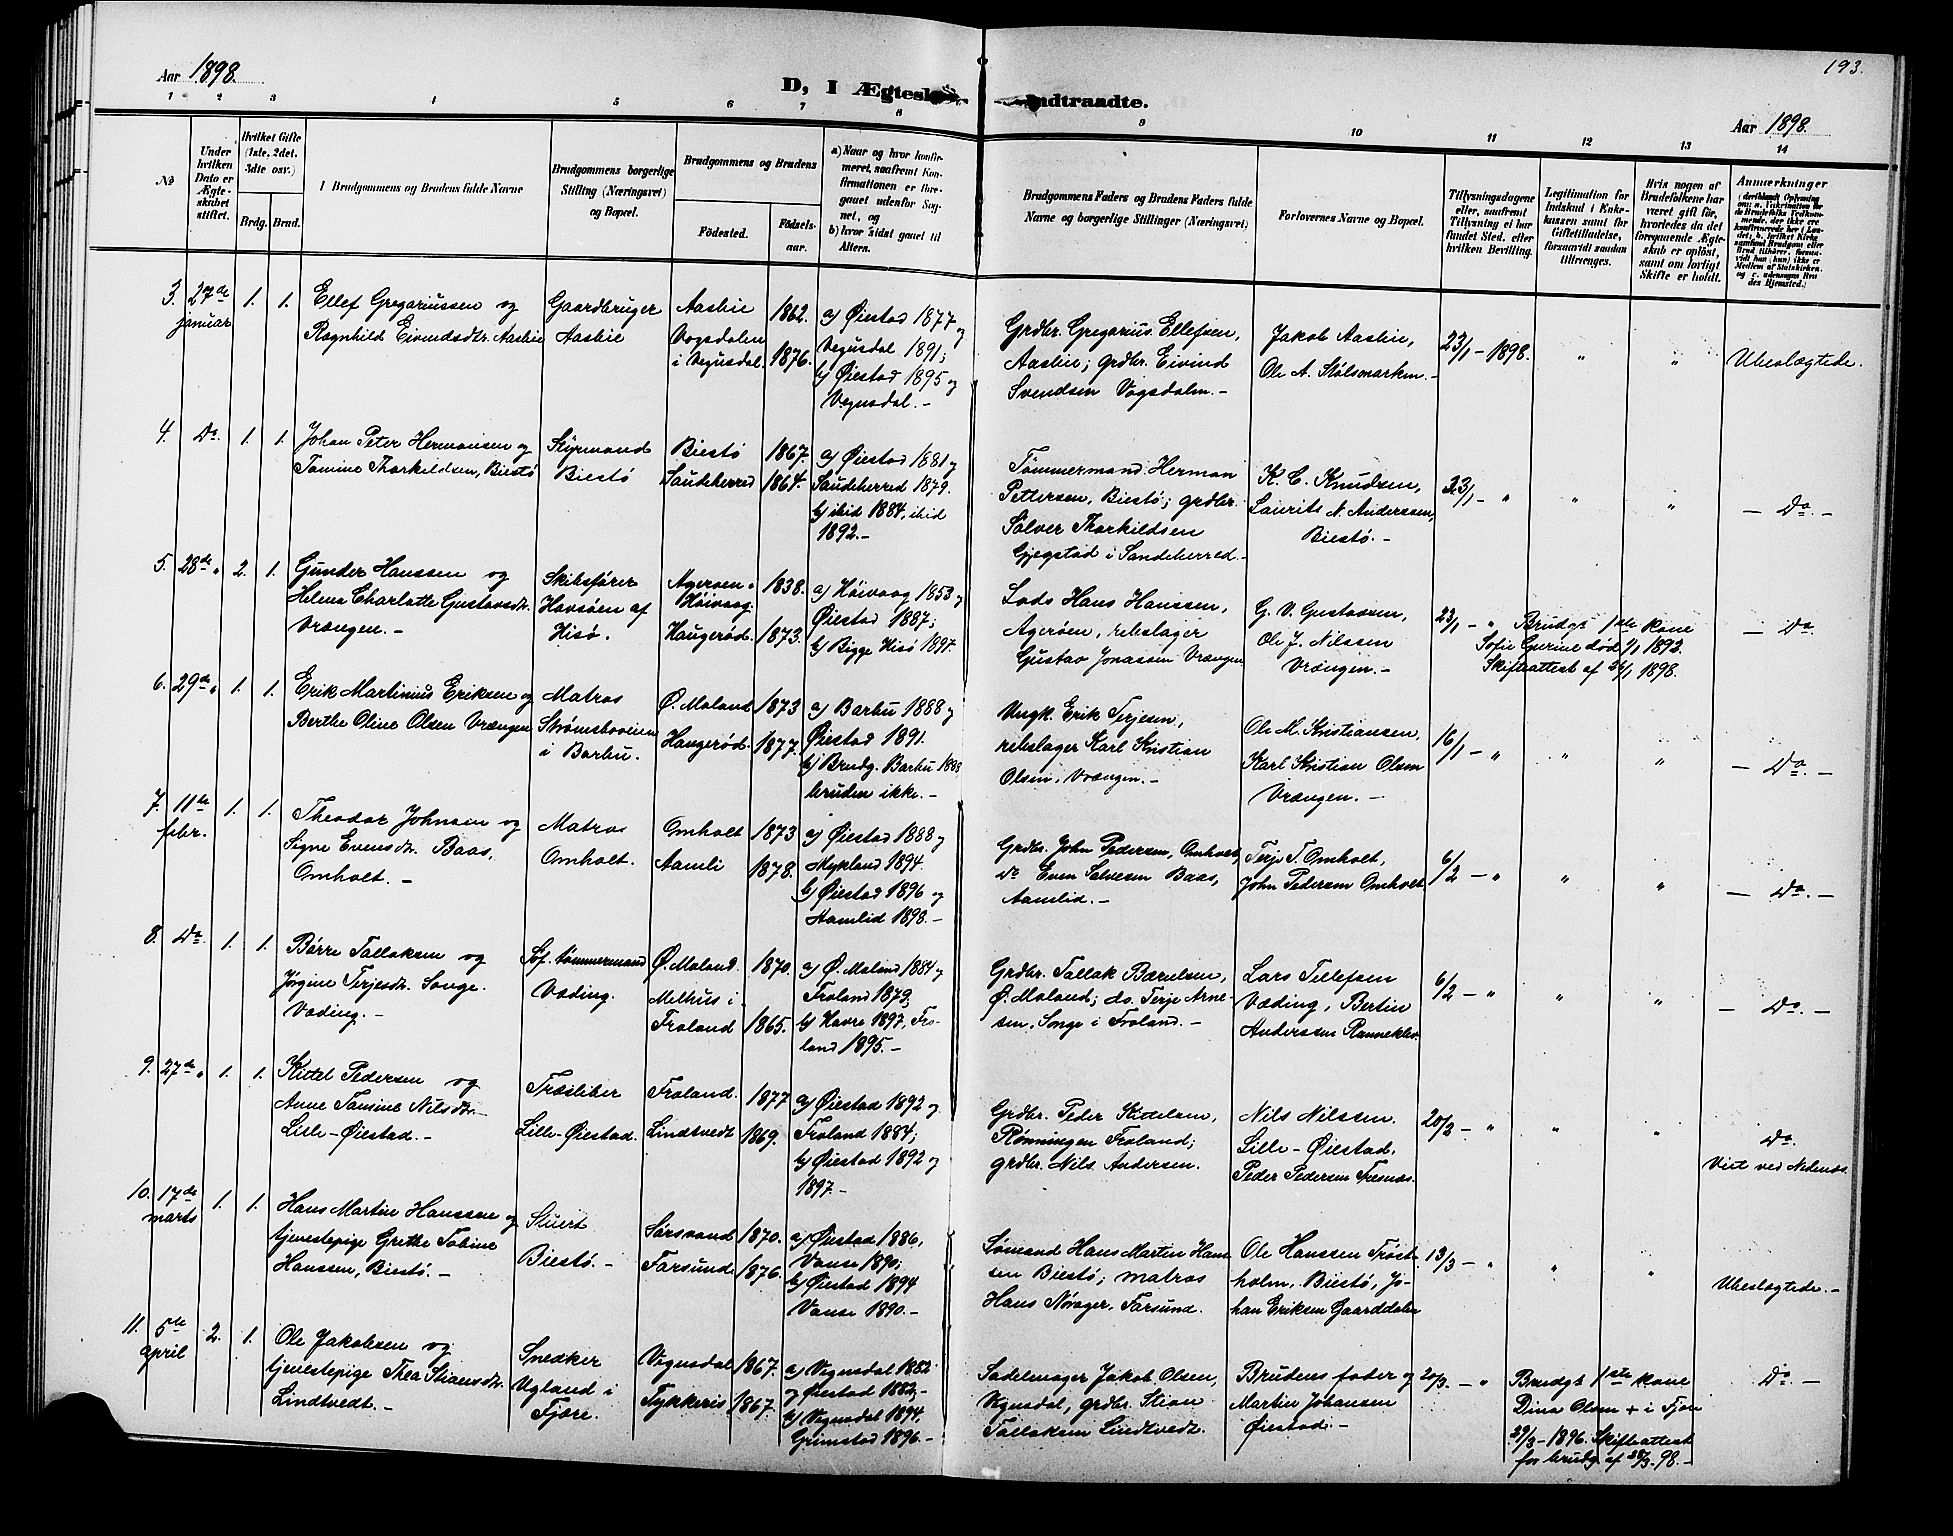 193.
Aar 1898.
D, I Ægtesk
Indtraadte.
Aar 1898.
1 2 3 4 5 6 7 8 9 10 11 12 13 14
No
Under hvilken Dato er Ægteskabet stiftet.
Hvilket Gifte (1ste, 2det, 3die osv.)
Brdg. Brud.
Brudgommens og Brudens fulde Navne
Brudgommens borgerlige Stilling (Næringsvei) og Bopæl.
Brudgommens og Brudens
Fødested.
Fødselsaar.
a) Naar og hvor konfirmeret, saafremt Konfirmationen er foregaaet udenfor Sognet, og
b) hvor sidst gaaet til Alters.
Brudgommens Faders og Brudens Faders fulde Navne og borgerlige Stillinger (Næringsvei)
Forlovernes Navne og Bopæl.
Tillysningsdagene eller, saafremt Tillysning ei har fundet Sted, efter hvilken Bevilling.
Legitimation for Indskud i Enkekassen samt for Giftetilladelse, forsaavidt saadan tiltrænges.
Hvis nogen af Brudefolkene har været gift før, hvorledes da det foregaaende Ægteskab er opløst, samt om lovligt Skifte er holdt.
Anmærkninger
3. 27de januar 1. 1.
Ellef Gregariussen og
Ragnhild Eivendsdtr. Aasbie
Gaardbruger
Aasbie
Aasbie
Vogsdalen
i Vegusdal
1862.
1876.
a) Øiestad 1877 og
Vegusdal 1891;
b) Øiestad 1895 og
Vegusdal. –
Grdbr. Gregarius Ellefsen,
Aasbie; grdbr. Eivind
Svendsen Vogsdalen. –
Jakob Aasbie,
Ole A. Stølsmarken. –
23/1 – 1898.
" "
Ubeslægtede.
4. Do. 1. 1.
Johan Peter Hermansen og
Tomine Thorkildsen, Biestø
Styrmand
Biestø
Biestø
Saudeherred
1867.
1864.
a) Øiestad 1881 og
Saudeherred 1879.
b) ibid 1884, ibid
1892. –
Tømmermand Herman
Pettersen, Biestø; grdbr.
Sølver Thorkildsen
Gjegstad i Sandeherred –
K. C. Knudsen,
Laurits N. Anderssen,
Biestø. –
23/1 – " " "
– Do. –
5. 28de " 2. 1.
Gunder Hanssen og
Helena Charlotte Gustavsdtr.
Vrængen. –
Skibsfører
Havsøen af
Hisø.
Agerøen
Høivaag
Haugerød.
1838.
1873.
a) Høivaag 1853 og
Øiestad 1887;
b) Bigge Hisø 1897.
Lods Hans Hanssen,
Agerøen, rebslager
Gustav Jonassen Vrængen
G. V. Gustavsen,
Ole J. Nilssen
Vrængen. –
23/1 – "
Brudgs 1ste kone
Sofie Gurine død 1/1 1893.
Skifteattest af 24/1 1898.
– Do
6. 29de " 1. 1.
Erik Martinius Eriksen og
Berthe Oline Olsen Vrængen
Matros
Strømsbooien
i Barbu.
Ø. Moland
Haugerød.
1873
1877.
a) Barbu 1888 og
Øiestad 1891.
b) Brudg. Barbu 1888
bruden ikke. –
Ungk. Erik Terjesen,
rebslager Karl Kristian
Olsen, Vrængen. –
Ole M. Kristiansen,
Karl Kristian Olsen
Vrængen. –
16/1 – " " "
– Do. –
7. 11te febr. 1. 1.
Theodor Johnsen og
Signe Evensdtr. Baas,
Omholt. –
Matros
Omholt.
Omholt
Aamli
1873
1878.
a) Øiestad 1888 og
Mykland 1894.
b) Øiestad 1896 og
Hamlid 1898. –
Grdbr. John Pedersen, Omholt,
do Even Salvesen Baas,
Aamlid. –
Terje T. Omholt,
John Pedersen Omholt
6/2 – " " "
– Do. –
8. Do. 1. 1.
Børre Tallaksen og
Jørgine Terjesdtr. Songe.
Væding. –
Sof. tømmermand
Væding.
Ø. Moland.
Melhus i
Froland
1870.
1865.
a) Ø. Moland 1884 og
Froland 1879.
b) Havre 1897, Fro-
land 1895. –
Grdbr. Tallak Børrelsen,
Ø. Moland; do. Terje Arne-
sen, Songe i Froland. –
Lars Tellefsen
Væding, Bertin
Anderssen Ranneklev.
6/2 – " " "
– Do. –
9. 27de " 1. 1.
Kittel Pedersen og
Anne Tomine Nilsdtr. –
Lille-Øiestad. –
Træsliber
Lille-Øiestad.
Froland.
Lindtvedt
1877
1869.
a) Øiestad 1892 og
Froland 1884;
b) Øiestad 1892 og
1897. –
Grdbr. Peder Kittelsen,
Rønningen Froland;
grdbr. Nils Andersen.
Nils Nilssen.
Lille-Øiestad.
Peder Pedersen Træsnæs.
20/2 – " " "
Do.
Viet ved Nedenæs.
10. 17de marts 1. 1.
Hans Martin Hanssen og
tjenestepige Grethe Tobine
Hanssen, Biestø. –
Stuert
Biestø. –
Sørsvand
Farsund
1870.
1876.
a) Øiestad 1886,
Vanse 1890;
b) Øiestad 1894
Vanse 1890. –
Sømand Hans Martin Han-
sen Biestø; matros
Hans Nørager, Farsund.
Ole Hanssen Trøst-
holm, Biestø, Jo-
han Eriksen Gaarddalen
13/3 – " " "
Ubeslægtede. –
11. 5te april 2. 1.
Ole Jakobsen og
tjenestepige Thea Stiansdtr.
Lindtvedt. –
Snedker
Ugland i
Fjære.
Vegusdal
Tykkeris
1867.
1867.
a) Vegusdal 1882
og Øiestad 1882, –
b) Vegusdal 1894,
Grimstad 1896. –
Sadelmager Jakob Olsen,
Vegusdal, grdbr. Stian
Tallaksen Lindtvedt.
Brudens fader og
Martin Johansen
Øiestad. –
20/3. – "
Brudgs 1ste kone
Dina Olsen + i Fjære
29/3 – 1896. Skifteattest
for brudg. af 28/3 98. –
Do –